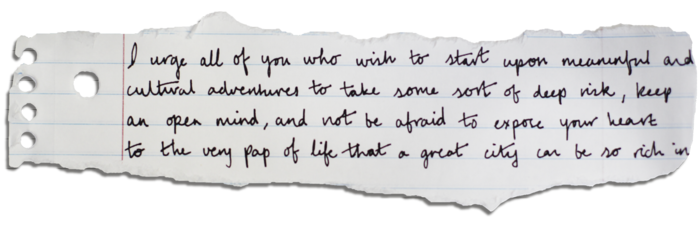 I urge all of you who wish to start upon meaningful and
cultural adventures to take some sort of deep risk, keep
an open mind, and not be afraid to expose your heart
to the very pap of life that a great city can be so rich in